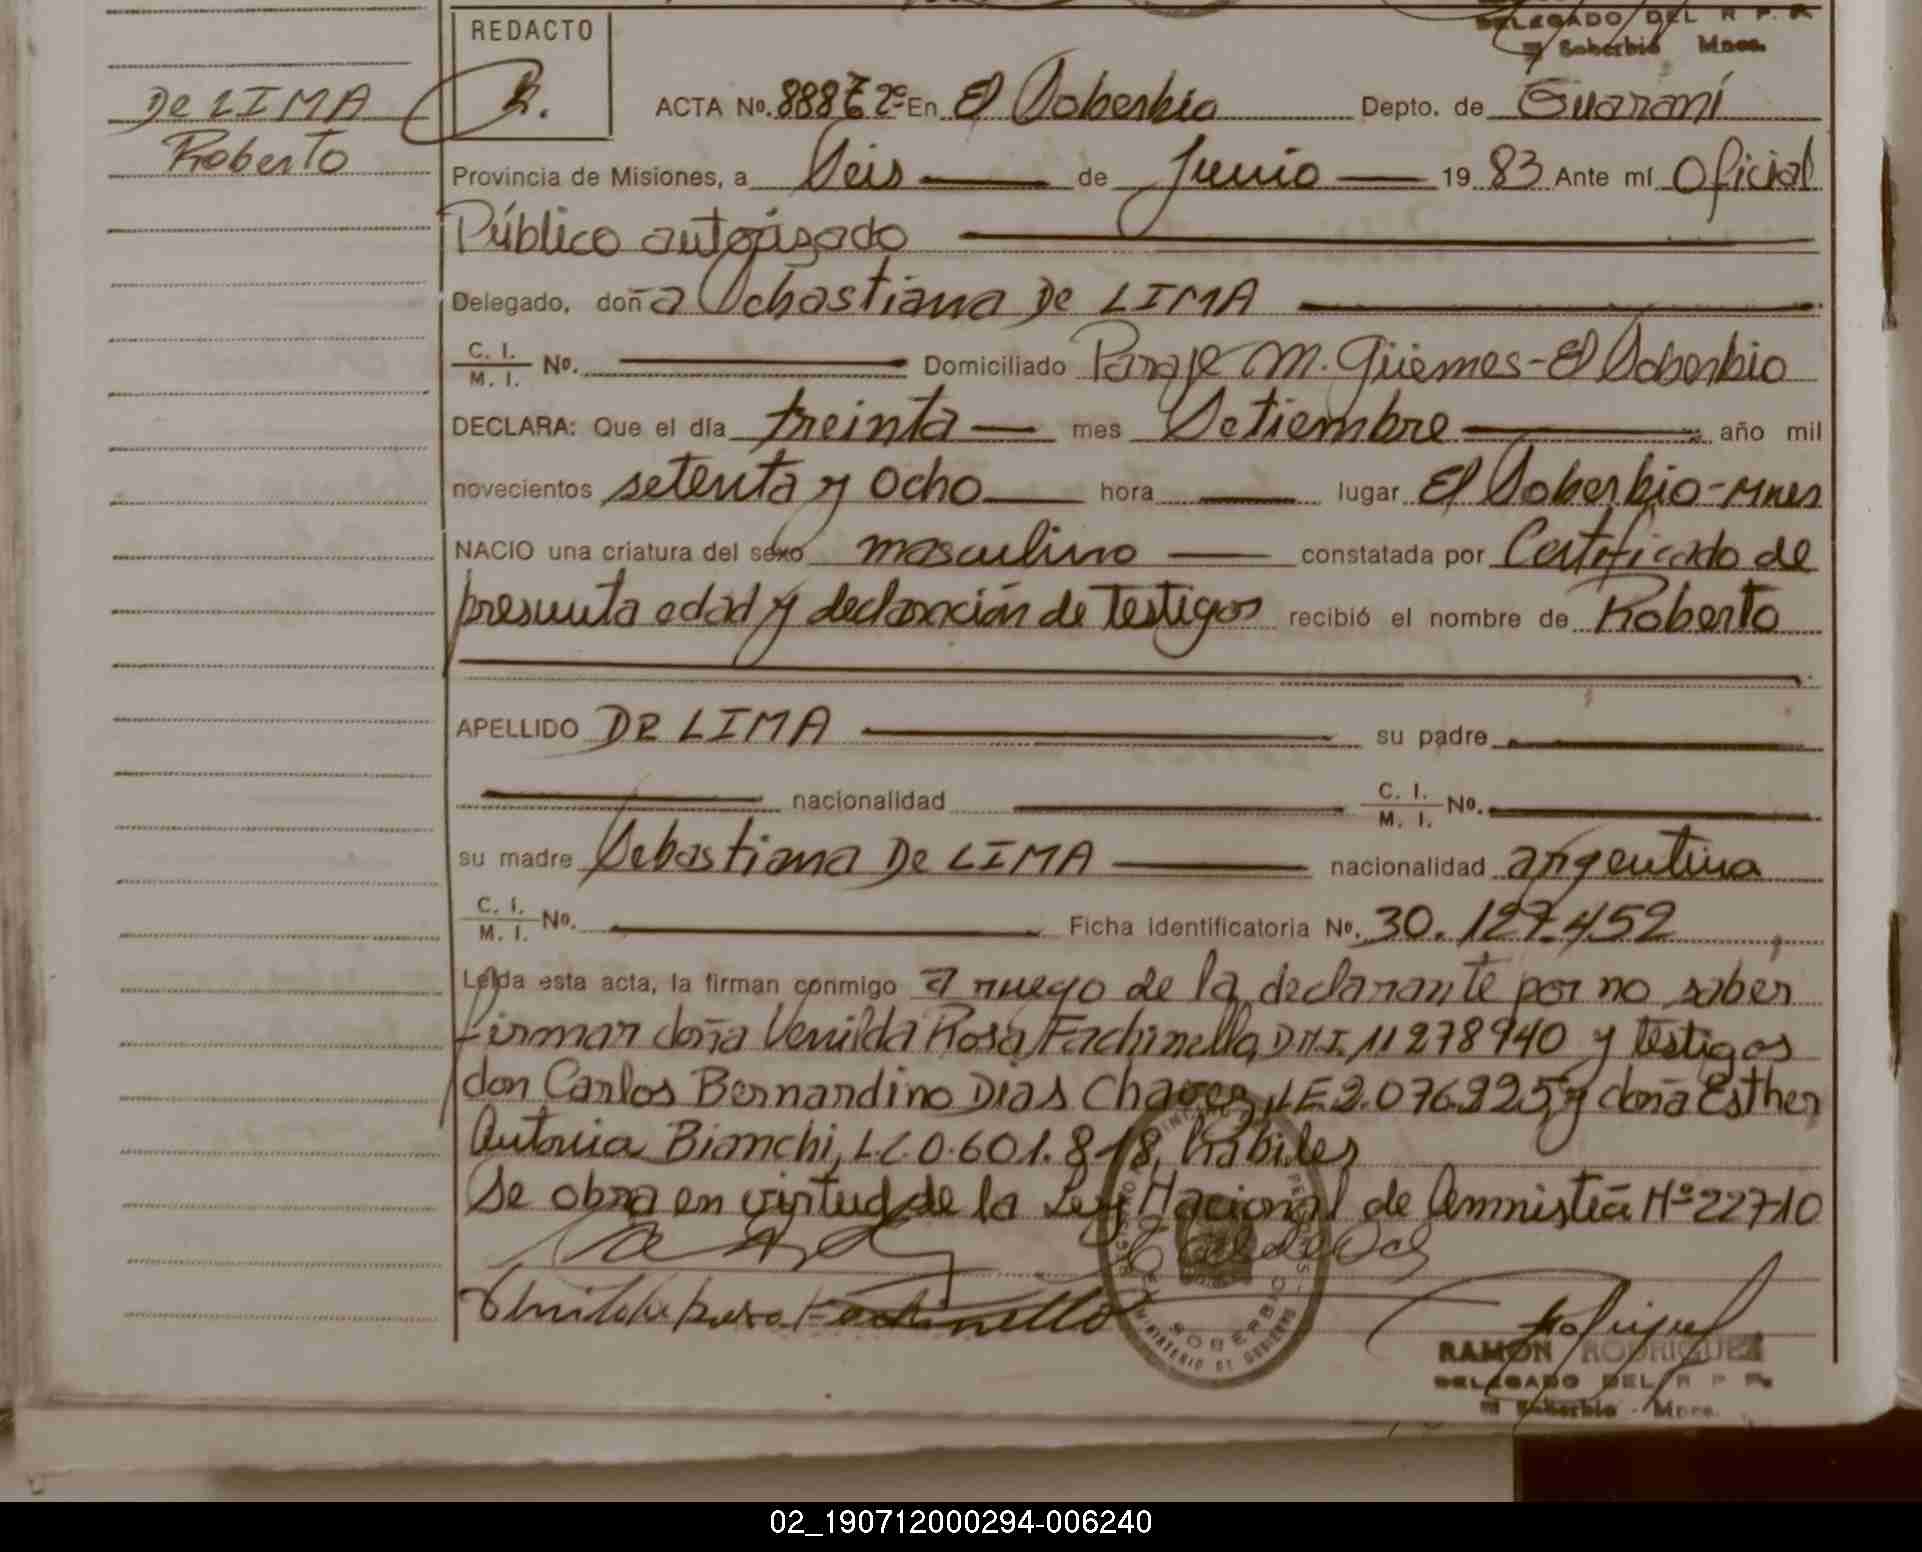 DELEGADO DEL R P. P.
El Soberbio Mnes.
REDACTO
R.
De LIMA
Roberto
ACTA No. 888 T 2º En El Soberbio Depto. de Guaraní
Provincia de Misiones, a Seis de Junio 19 83 Ante mí Oficial
Público autorizado
Delegado, doña Sebastiana De LIMA
C. I. / M. I. No. Domiciliado Paraje M. Güemes - El Soberbio
DECLARA: Que el día treinta mes Setiembre año mil
novecientos setenta y ocho hora lugar El Soberbio - Mnes
NACIO una criatura del sexo masculino constatada por Certificado de
presunta edad y declaración de testigos recibió el nombre de Roberto
APELLIDO De LIMA su padre
nacionalidad C. I. / M. I. No.
su madre Sebastiana De LIMA nacionalidad argentina
C. I. / M. I. No. Ficha identificatoria No. 30.127.452
Leída esta acta, la firman conmigo a ruego de la declarante por no saber
firmar doña Venilda Rosa Fachinello, DNI. 11278940 y testigos
don Carlos Bernardino Dias Chavez, LE 2.076.225, y doña Esther
Antonia Bianchi, L.C. 0.601.818, hábiles
Se obra en virtud de la Ley Nacional de Amnistía Nº 22710
Venilda Rosa Fachinello
SOBERBIO
MINISTERIO DE GOBIERNO
RAMON RODRIGUEZ
DELEGADO DEL R P P.
El Soberbio - Mnes.
02_190712000294-006240